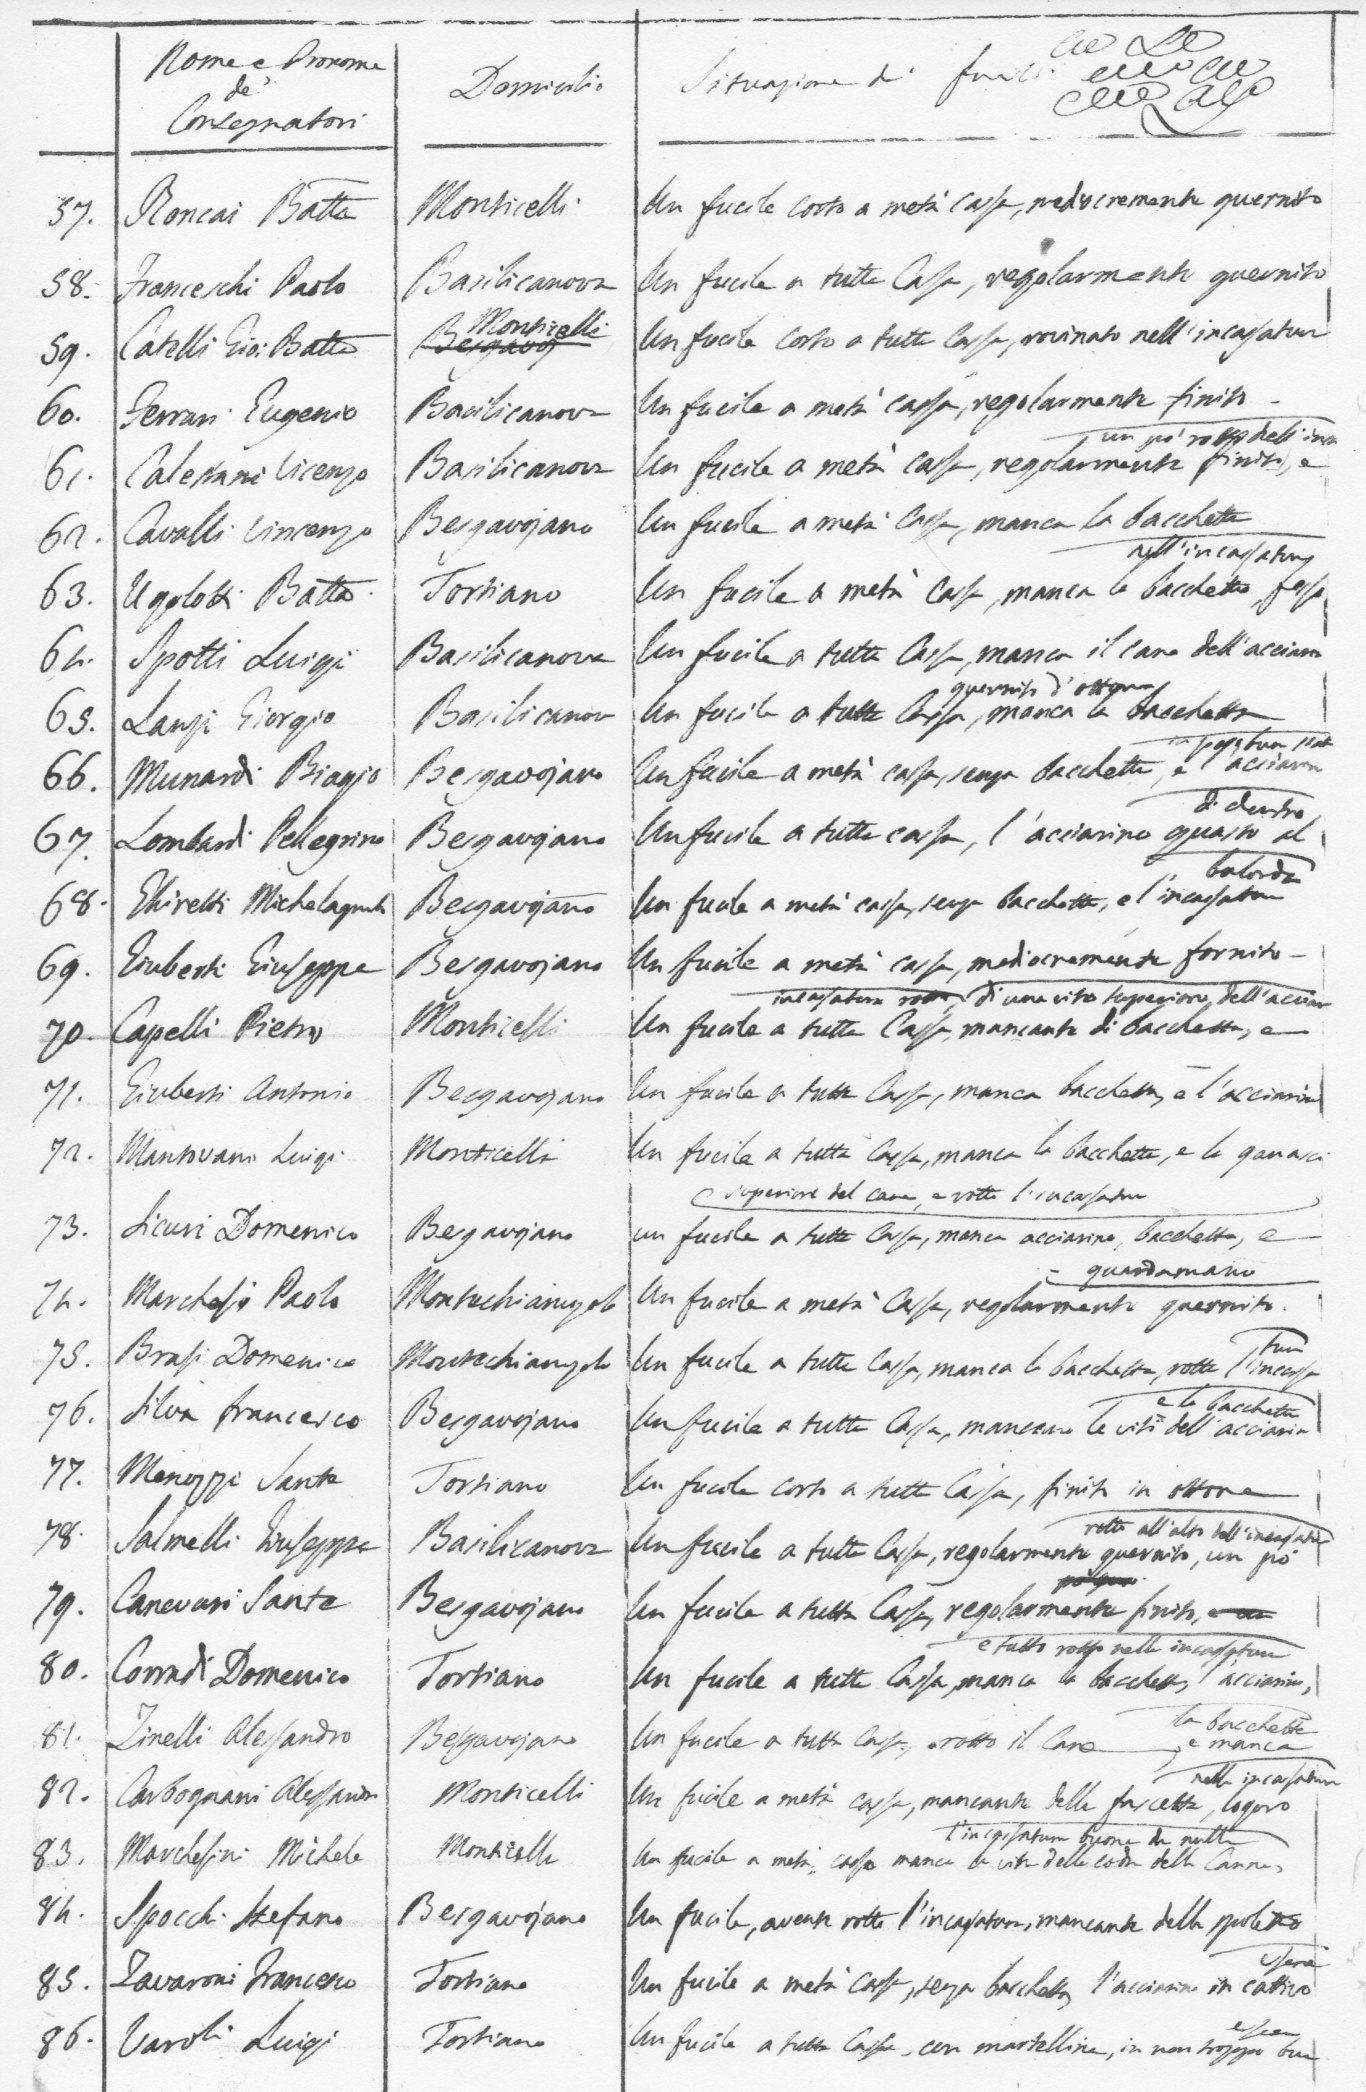 Nome e Pronome de' Consegnatori Domicilio Situazione di fucili
57. Roncai Batta Monticelli Un fucile corto a metà cassa, mediocremente guernito
58. Franceschi Paolo Basilicanova Un fucile a tutta Cassa, regolarmente guernito
59. Catelli Gio: Batta Monticelli Un fucile corto a tutta Cassa, rovinato nell'incassatura
60. Ferrari Eugenio Basilicanova Un fucile a metà cassa, regolarmente finito -
61. Calestani Vicenzo Basilicanova Un fucile a metà cassa, regolarmente finito, e
un pò rotto dell'
62. Cavalli Vincenzo Besgavojano Un fucile a metà Cassa, manca la bacchetta
63. Ugolotti Batta Tortiano Un fucile a metà Cassa, manca la bacchetta, fesso
nell'incassatura
64. Spotti Luigi Basilicanova Un fucile a tutta Cassa, manca il cane dell'acciarino
65. Lanzi Giorgio Basilicanova Un fucile a tutta Cassa, manca la bacchetta
guernito d'ottone
66. Munardi Biagio Besgavojano Un fucile a metà cassa, senza bacchetta, e l'acciarino
67. Lombardi Pellegrino Besgavojano Un fucile a tutta cassa, l'acciarino guasto al
di dentro
68. Ghiretti Michelagnolo Besgavojano Un fucile a metà cassa, senza bacchetta, e l'incassatura
balorda
69. Giuberti Giuseppe Besgavojano Un fucile a metà cassa, mediocremente fornito -
70. Capelli Pietro Monticelli Un fucile a tutta Cassa, mancante di bacchetta, e
incassatura rotta, di una vite superiore dell'acciarino
71. Giuberti Antonio Besgavojano Un fucile a tutta Cassa, manca bacchetta, e l'acciarino
72. Mantovani Luigi Monticelli Un fucile a tutta Cassa, manca la bacchetta, e la ganascia
superiore del cane, e rotta l'incassatura
73. Sicuri Domenico Besgavojano un fucile a tutta Cassa, manca acciarino, bacchetta, e
guardamano
74. Marchesi Paolo Montechiarugolo Un fucile a metà Cassa, regolarmente guernito.
75. Brasi Domenico Montechiarugolo Un fucile a tutta Cassa, manca la bacchetta, rotta l'incassa
tura
76. Silva Francesco Besgavojano Un fucile a tutta Cassa, mancano le viti dell'acciarino
e la bacchetta
77. Menozzi Sante Tortiano Un fucile corto a tutta Cassa, finito in ottone
78. Salmelli Giuseppe Basilicanova Un fucile a tutta Cassa, regolarmente guernito, un pò
rotto all'alto dell'incassatura
79. Canevari Sante Besgavojano Un fucile a tutta Cassa, regolarmente finito,
80. Corradi Domenico Tortiano Un fucile a tutta Cassa, manca la bacchetta, l'acciarino,
e tutto rotto nella incassatura
81. Zinelli Alessandro Besgavojano Un fucile a tutta Cassa, rotto il Cane
e manca la bacchetta
82. Carbognani Alessandro Monticelli Un fucile a metà cassa, mancante della fascetta, logoro
nella incassatura
83. Marchesini Michele Monticelli Un fucile a metà cassa manca la vite della coda della Canna,
l'incassatura buona da nulla
84. Spocchi Stefano Besgavojano Un fucile, avente rotta l'incassatura, mancante della spoletta
85. Zavaroni Francesco Tortiano Un fucile a metà Cassa, senza bacchetta, l'acciarino in cattivo
86. Varoli Luigi Tortiano Un fucile a tutta Cassa, con martellina, in non troppo buo